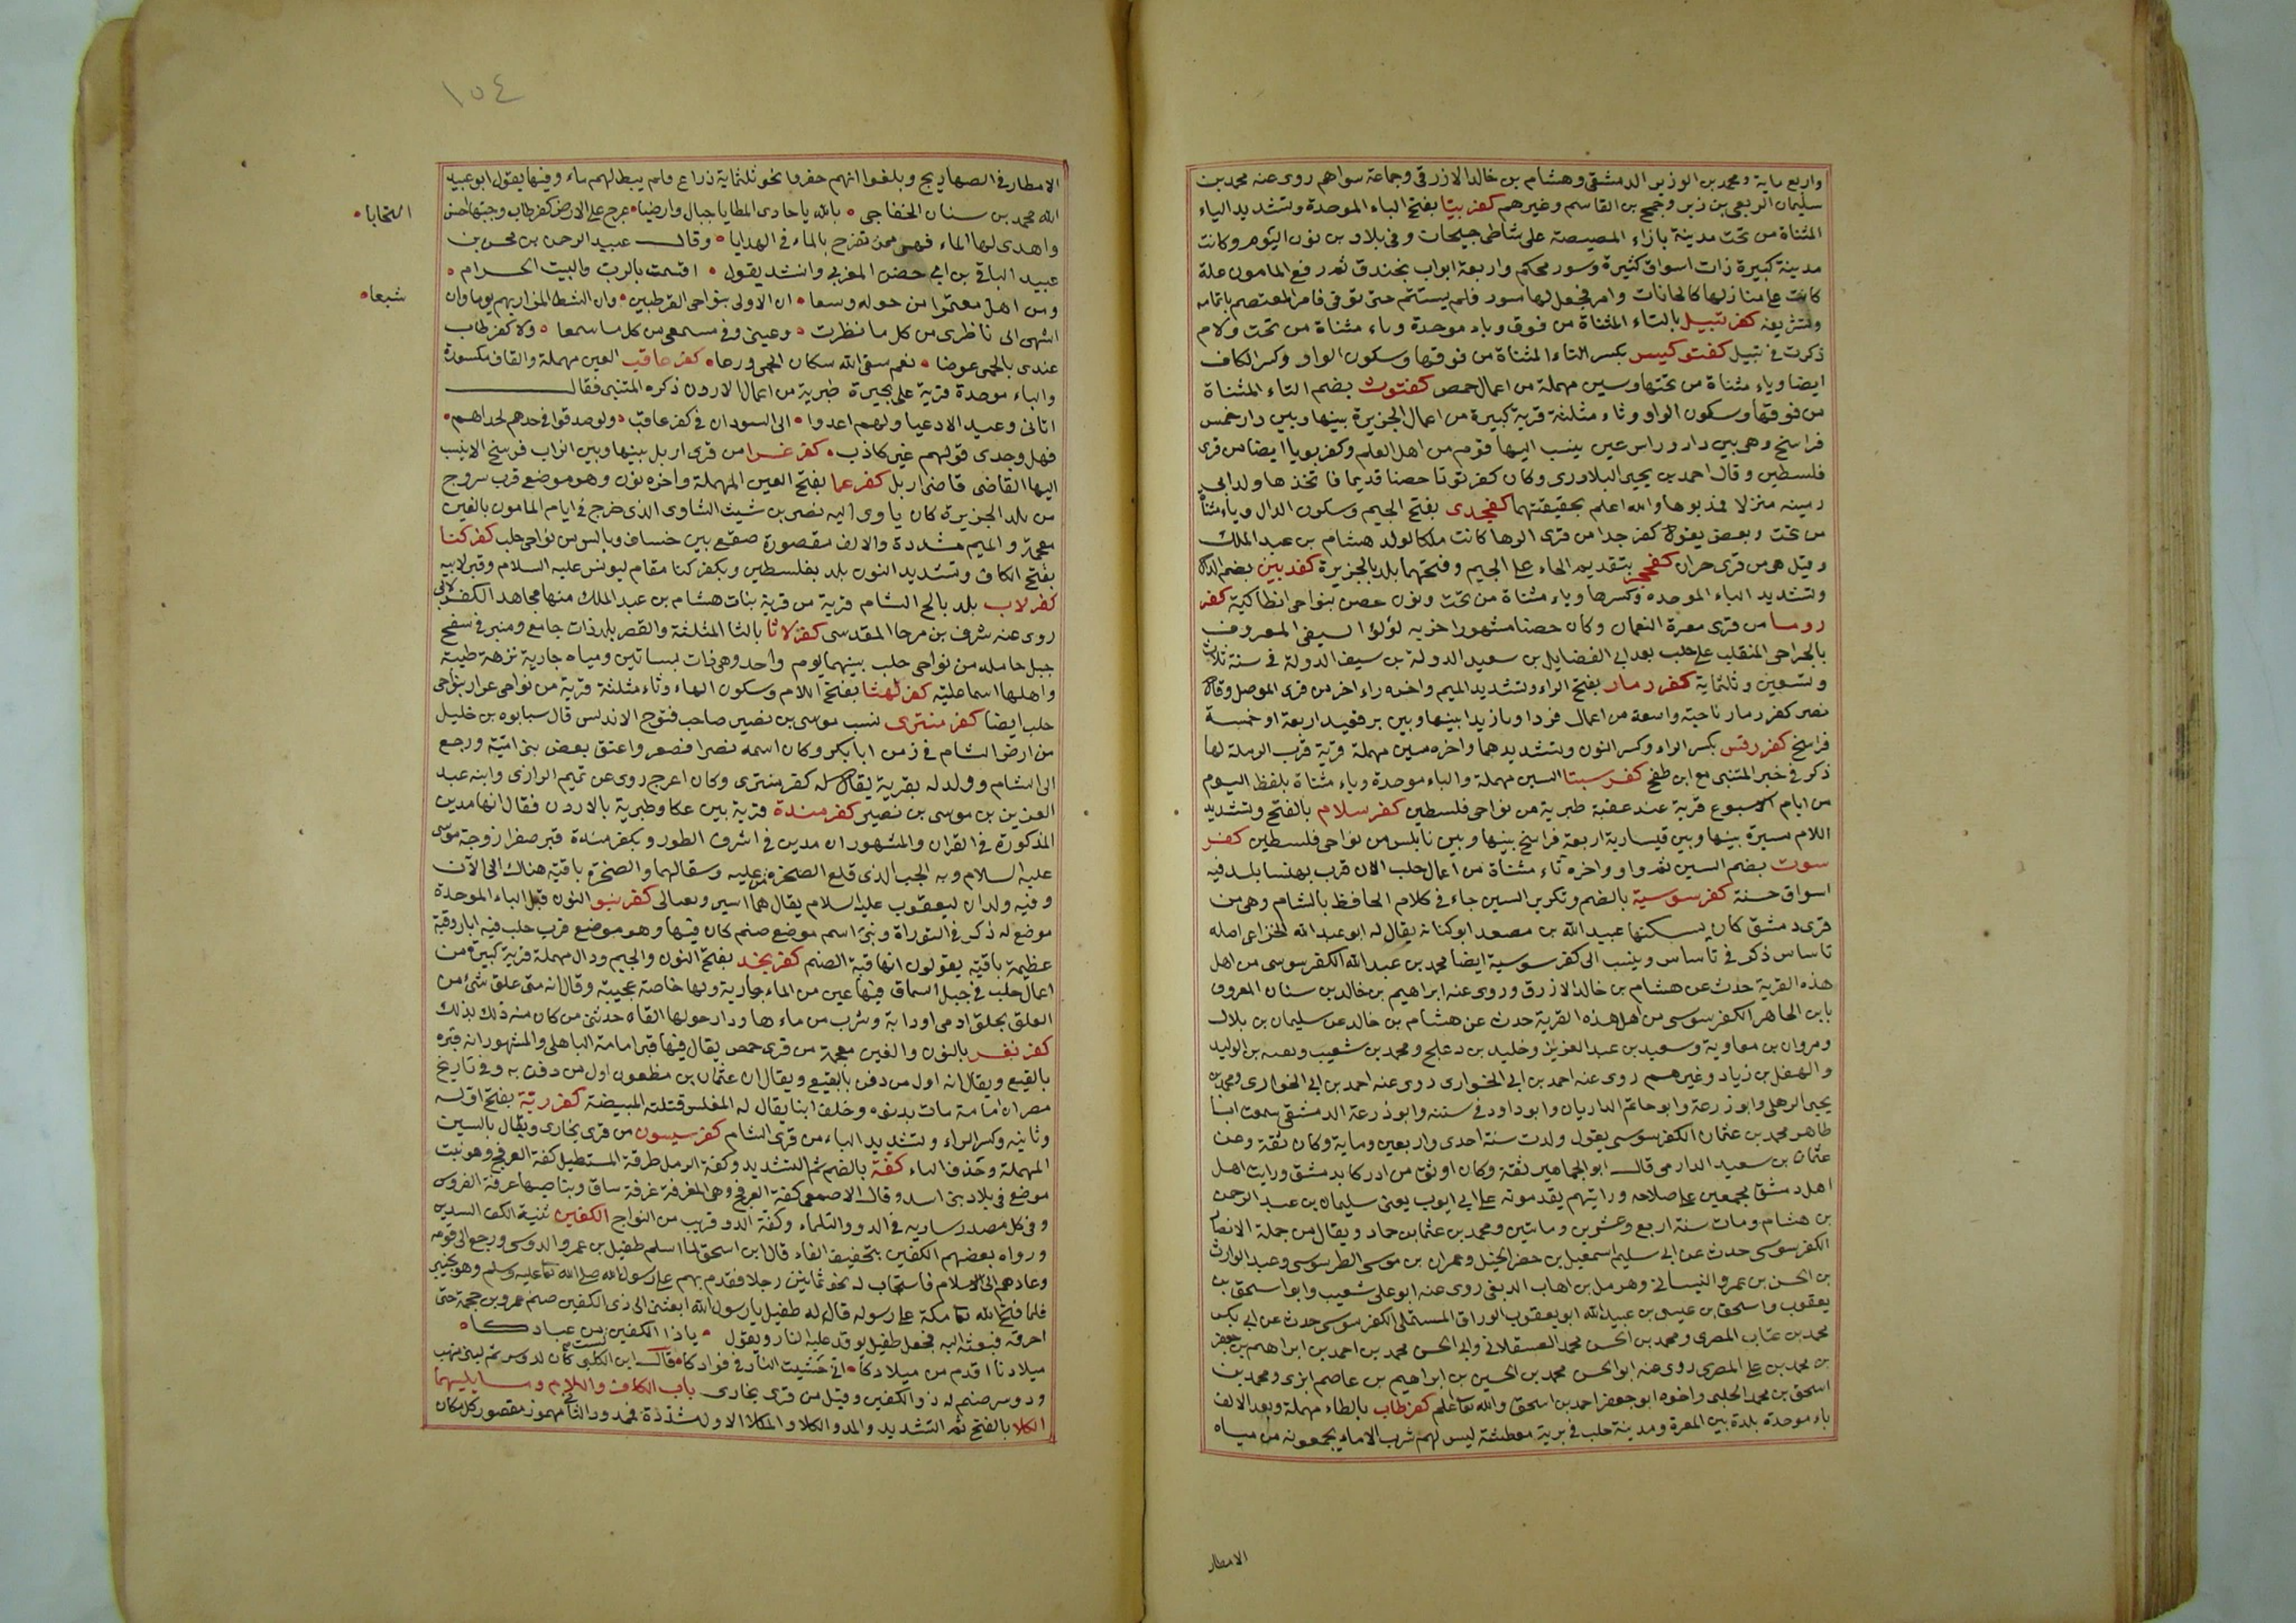 واربع ماية ومحمد بن الوزير الدمشقى وهشام بن خالد الازرق وجماعة سواهم روى عنه محمد بن
سليمان الربعى بن زبر وجمح بن القاسم وغيرهم كفربيّا بفتح الباء الموحدة وتشديد الياء
المثناة من تحت مدينة بازاء المصيصة على شاطى جيحات وفى بلاد بن نون اليوم وكانت
مدينة كبيرة ذات اسواق كثيرة وسور محكم واربعة ابواب بخندق ثم رفع المامون غلة
كانت على منازلها كالخانات وامر فجعل لها سور فلم يستتم حتى توفى فامر المعتصم باتمامه
وتشريفه كفر تبيل بالتاء المثناة من فوق وباء موحدة وياء مثناة من تحت ولام
ذكرت فى تبيل كفتوكيس بكسر التاء المثناة من فوقها وسكون الواو وكسر الكاف
ايضا وياء مثناة من تحتها وسين مهملة من اعمال حمص كفتوث بضم التاء المثناة
من فوقها وسكون الواو وثاء مثلثة قرية كبيرة من اعمال الجزيرة بينها وبين دارا خمس
فراسخ وهى بين دارا وراس عين ينسب اليها قوم من اهل العلم وكفر بويا ايضا من قرى
فلسطين وقال احمد بن يحيى البلادرى وكان كفر توثا حصنا قديما فاتخذها ولد ابى
رمينه منزلا فمذبوها والله اعلم بحقيقتهما كفجدى بفتح الجيم وسكون الدال وياء مثناة
من تحت وبعضى يقول كفر جدا من قرى الرها كانت ملكا لولد هشام بن عبد الملك
وقيل هو من قرى حران كفحجر بتقديم الحاء على الجيم وفتحتهما بلد بالجزيرة كفدبين بضم الدال
وتشديد الباء الموحده وكسرها وياء مثناة من تحت ونون حصن بنواحى انطاكية كفر
روما من قرى معرة النعمان وكان حصنا مشهورا خربه لؤلؤ السيفى المعروف
بالجراحى المتغلب على حلب بعد ابى الفضايل بن سعيد الدولة بن سيف الدولة فى سنة ثلاث
وتسعين وثلثماية كفر رمار بفتح الراء وتشديد الميم واخره راء اخر من قرى الموصل وقال
نصر كفر رمار ناحية واسعة من اعمال فردا وبازيدا بينها وبين برقعيد اربعة او خمسة
فراسخ كفر رقس بكسر الراء وكسر النون وبتشديدهما واخره سين مهملة قرية قرب الرملة لها
ذكر فى خبر المتنبى مع ابن طفج كفر سبتا السين مهملة والباء موحدة وياء مثناة بلفظ اليوم
من ايام الاسبوع قرية عند عقبة طبرية من نواحى فلسطين كفر سلام بالفتح وتشديد
اللام مسيرة بينها وبين قيسارية اربعة فراسخ بينها وبين نابلس من نواحى فلسطين كفر
سوت بضم السين ثم واو واخره تاء مثناة من اعمال حلب الان قرب بهنسا بلد فيه
اسواق حسنة كفر سوسية بالضم وتكرير السين جاء فى كلام الحافظ بالشام وهى من
قرى دمشق كان يسكنها عبيد الله بن مصعد ابو كنانه يقال له ابو عبد الله الخزاعى اصله
تاساس ذكر فى تأساس وينسب الى كفر سوسية ايضا محمد بن عبد الله الكفرسوسى من اهل
هذه القرية حدث عن هشام بن خالد الازرق وروى عنه ابراهيم بن خالد بن سنان المعروف
بابن الجاهر الكفرسوسى من اهل هذه القرية حدث عن هشام بن خالد عن سليمان بن بلال
ومروان بن معاوية وسعيد بن عبد العزيز وخليد بن دعلج ومحمد بن شعيب وبقيه بن الوليد
والهقل بن زياد وغيرهم روى عنه احمد بن ابى الحوارى روى عنه احمد بن ابى الحوارى ومحمد بن
يحيى الرهلى وابو زرعة وابو حاتم الداريان وابو داود فى سننه وابو زرعة الدمشقى سمعت ابا
طاهر محمد بن عثمان الكفرسوسى يقول ولدت سنة احدى واربعين وماية وكان ثقة وعن
عثمان بن سعيد الدارمى قال ابو الجماهير ثقة وكان اوثق من ادركنا بدمشق ورايت اهل
اهل دمشق مجمعين على صلاحه ورايتهم يقدمونه على ابى ايوب يعنى سليمان بن عبد الرحمن
بن هشام ومات سنة اربع وعشرين ومائتين ومحمد بن عثمان بن حماد ويقال من جملة الانصار
الكفرسوسى حدث عن ابى سليم اسمعيل بن حصن الجبل وعمران بن موسى الطرسوسى وعبد الوارث
بن الحسن بن عمرو النيسانى وهرمل بن اهاب الديفى روى عنه ابو على شعيب وابو اسحق بن
يعقوب واسحق بن عيسى بن عبيد الله ابو يعقوب الوراق المستملى الكفرسوسى حدث عن ابى بكر
محمد بن عتاب المصرى ومحمد بن الحسن محمد العسقلانى وابى الحسن محمد بن احمد بن ابراهيم بن جعفر
بن محمد بن على المصرى روى عنه ابو الحسن محمد بن الحسين بن ابراهيم بن عاصم ابزى ومحمد بن
اسحق بن محمد الحلبى واخوه ابو جعفر احمد بن اسحق والله تعا اعلم كفر طاب بالطاء مهملة وبعد الالف
باء موحدة بلدة بين المعرة ومدينة حلب فى برية معطشة ليس لهم شرب الا ماء يجمعونه من مياه
الامطار
١٥٤
الامطار فى الصهاريج وبلغوا انهم حفروا نحو ثلثماية ذراع فلم ينبط لهم ماء وفيها يقول ابو عبيد
الله محمد بن سنان الخفاجى بالله يا حادى المطايا جبال وارضيا عرج على الارض كفر طاب وحيها احسن
التحايا
واهدى لها الماء فهى ممن تفرح بالماء فى الهدايا وقال عبيد الرحمن بن محسن بن
عبيد الباقى بن ابى حضن المغربى وانشد يقول اقسمت بالرب والبيت الحرام
ومن اهل معتمرا من حوله وسعا ان الاولى بنواحى القرطبين وان الشط المزاريهم يوما وان
شبعا
اشهى الى ناظرى من كل ما نظرت وعينى وفى مسمعى من كل ما سمعا ولا كفر طاب
عندى بالحمى عوضا نعم سقى الله سكان الحمى ورعا كفر عاقب العين مهملة والقاف مكسورة
والباء موحدة قرية على بحيرة طبرية من اعمال الاردن ذكره المتنبى فقال
اتانى وعيد الادعيا ولهم اعدوا الى السودان فى كفر عاقب ولو صدقوا فى جدهم لحذرتهم
فهل وحدى قولهم غير كاذب كفر غرا من قرى اربل بينها وبين الزاب فرسخ الاينسب
اليها القاضى قاضى اربل كفر عما بفتح العين المهملة واخره نون وهو موضع قرب سروج
من بلد الجزيرة كان ياوى اليه نصر بن شيث الشاوى الذى خرج فى ايام المامون بالغين
معجمة والميم مشددة والالف مقصورة صقع بين خساف وبالس من نواحى حلب كفر كنا
بفتح الكاف وتشديد النون بلد بفلسطين وبكفر كنا مقام ليونس عليه السلام وقبر لابيه
كفر لاب بلد بالح الشام قرية من قرية بنات هشام بن عبد الملك منها مجاهد الكفرلابى
روى عنه شرف بن مرحا المقدسى كفر لاثا بالثا المثلثة والقصر بلد ذات جامع ومنبر فى سفح
جبل حامله من نواحى حلب بينهما يوم واحد وهى ذات بساتين ومياه جارية نزهة طيبة
واهلها اسماعلية كفر لهثا بفتح اللام وسكون الهاء وثاء مثلثة قرية من نواحى عزاز بنواحى
حلب ايضا كفر منترى نسب موسى بن نصير صاحب فتوح الاندلس قال سبابوه بن خليل
من ارض الشام فى زمن ابا بكر وكان اسمه نصرا فصغر واعتق بعض بنى امية ورجع
الى الشام وولد له بقرية يقال له كفر مترى وكان اعرج روى عن تميم الرازى وابنه عبد
العزيز بن موسى بن نصير كفر مندة قرية بين عكا وطبرية بالاردن فقال انها مدين
المذكورة فى القران والمشهور ان مدين فى اشرف الطور وبكفر مندة قبر صفرا زوجة موسى
عليه السلام وبه الجب الذى قلع الصخرة من عليه وسقالهما والصخرة باقية هناك الى الآن
وفيه ولدان ليعقوب عليه السلام يقال هما اسير ونفتالى كفر نبو النون قبل الباء الموحدة
موضع له ذكر فى التوراة ونبى اسم موضع صنم كان فيها وهو موضع قرب حلب فيه ابار وقبة
عظيمة باقية يقولون انها قبة الصنم كفر نجد بفتح النون والجيم ودال مهملة قرية كبيرة من
اعمال حلب فى جبل اسماق فيها عين من الماء جارية ولها خاصة عجيبة وقال انه متى علق شئ من
العلق بحلق ادمى او دابة وشرب من ماءها ودار حولها القاه حدثنى من كان منه ذلك بذلك
كفر نغر بالنون والغين معجمة من قرى حمص يقال فيها قبر امامة الباهلى والمشهور انه قبره
بالقيع ويقال انه اول من دفن بالبقيع ويقال ان عثمان بن مظعون اول من دفن به وفى تاريخ
مصر ان امامة مات بدنوه وخلف ابنا يقال له المغلس قتلته المبيضة كفر ريّة بفتح اوله
وثانيه وكسر الراء وتشديد الياء من قرى الشام كفر سيسون من قرى بخارى ويقال بالسين
المهملة وحذف الباء كفة بالضم ثم التشديد وكفة الرمل طرفة المستطيل كفة العرفج وهو نبت
موضع فى بلاد بنى اسد وقال الاصمعى كفة العرفج وهى المغرفة غرفة ساق وبناصيها عرفة الفروس
وفى كل مصدر ساريه فى الدو والثلماء وكفة الدو قريب من النواج الكفين تثنية الكف السديه
ورواه بعضهم الكفين بتخفيف الفاء قال ابن اسحق لما اسلم طفيل بن عمرو الدوسى ورجع الى قومه
وعادهم الى الاسلام فاستجاب له نحو ثمانين رجلا فقدم بهم على رسول الله صلى الله تعا عليه وسلم وهو بخيبر
فلما فتح الله تعا مكة على رسوله قال له طفيل يا رسول الله ابعثنى الى ذى الكفين صنم عمرو بن حممة حتى
احرقه فبعثه اليه فجعل طفيل يوقد عليه النار ويقول ياذا الكفين لست من عبادكا
ميلادنا اقدم من ميلادكا انى حشيت النار فى فوادكا قال ابن الكلبى كان لدوس ثم لبنى منهب
ودوس صنم له ذو الكفين وقيل من قرى بخارى باب الكاف واللام وما يليهما
الكلا بالفتح ثم التشديد والمد والكلا والمكلا الاول مشددة ممدود والثانى مهموز مقصور كل مكان